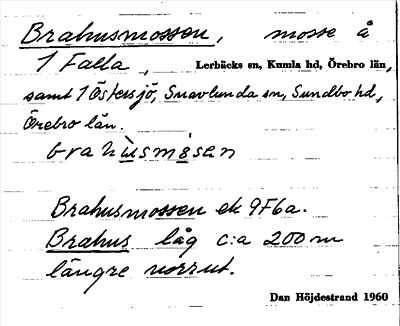 Brahusmossen, mosse å
1 Falla, Lerbäcks sn, Kumla hd, Örebro län,
samt 1 Östersjö, Snavlunda sn, Sundbo hd,
Örebro län.
bra hùsmåsen
Brahusmossen ek 9F6a.
Brahus låg c:a 200 m
längre norrut.
Dan Höjdestrand 1960